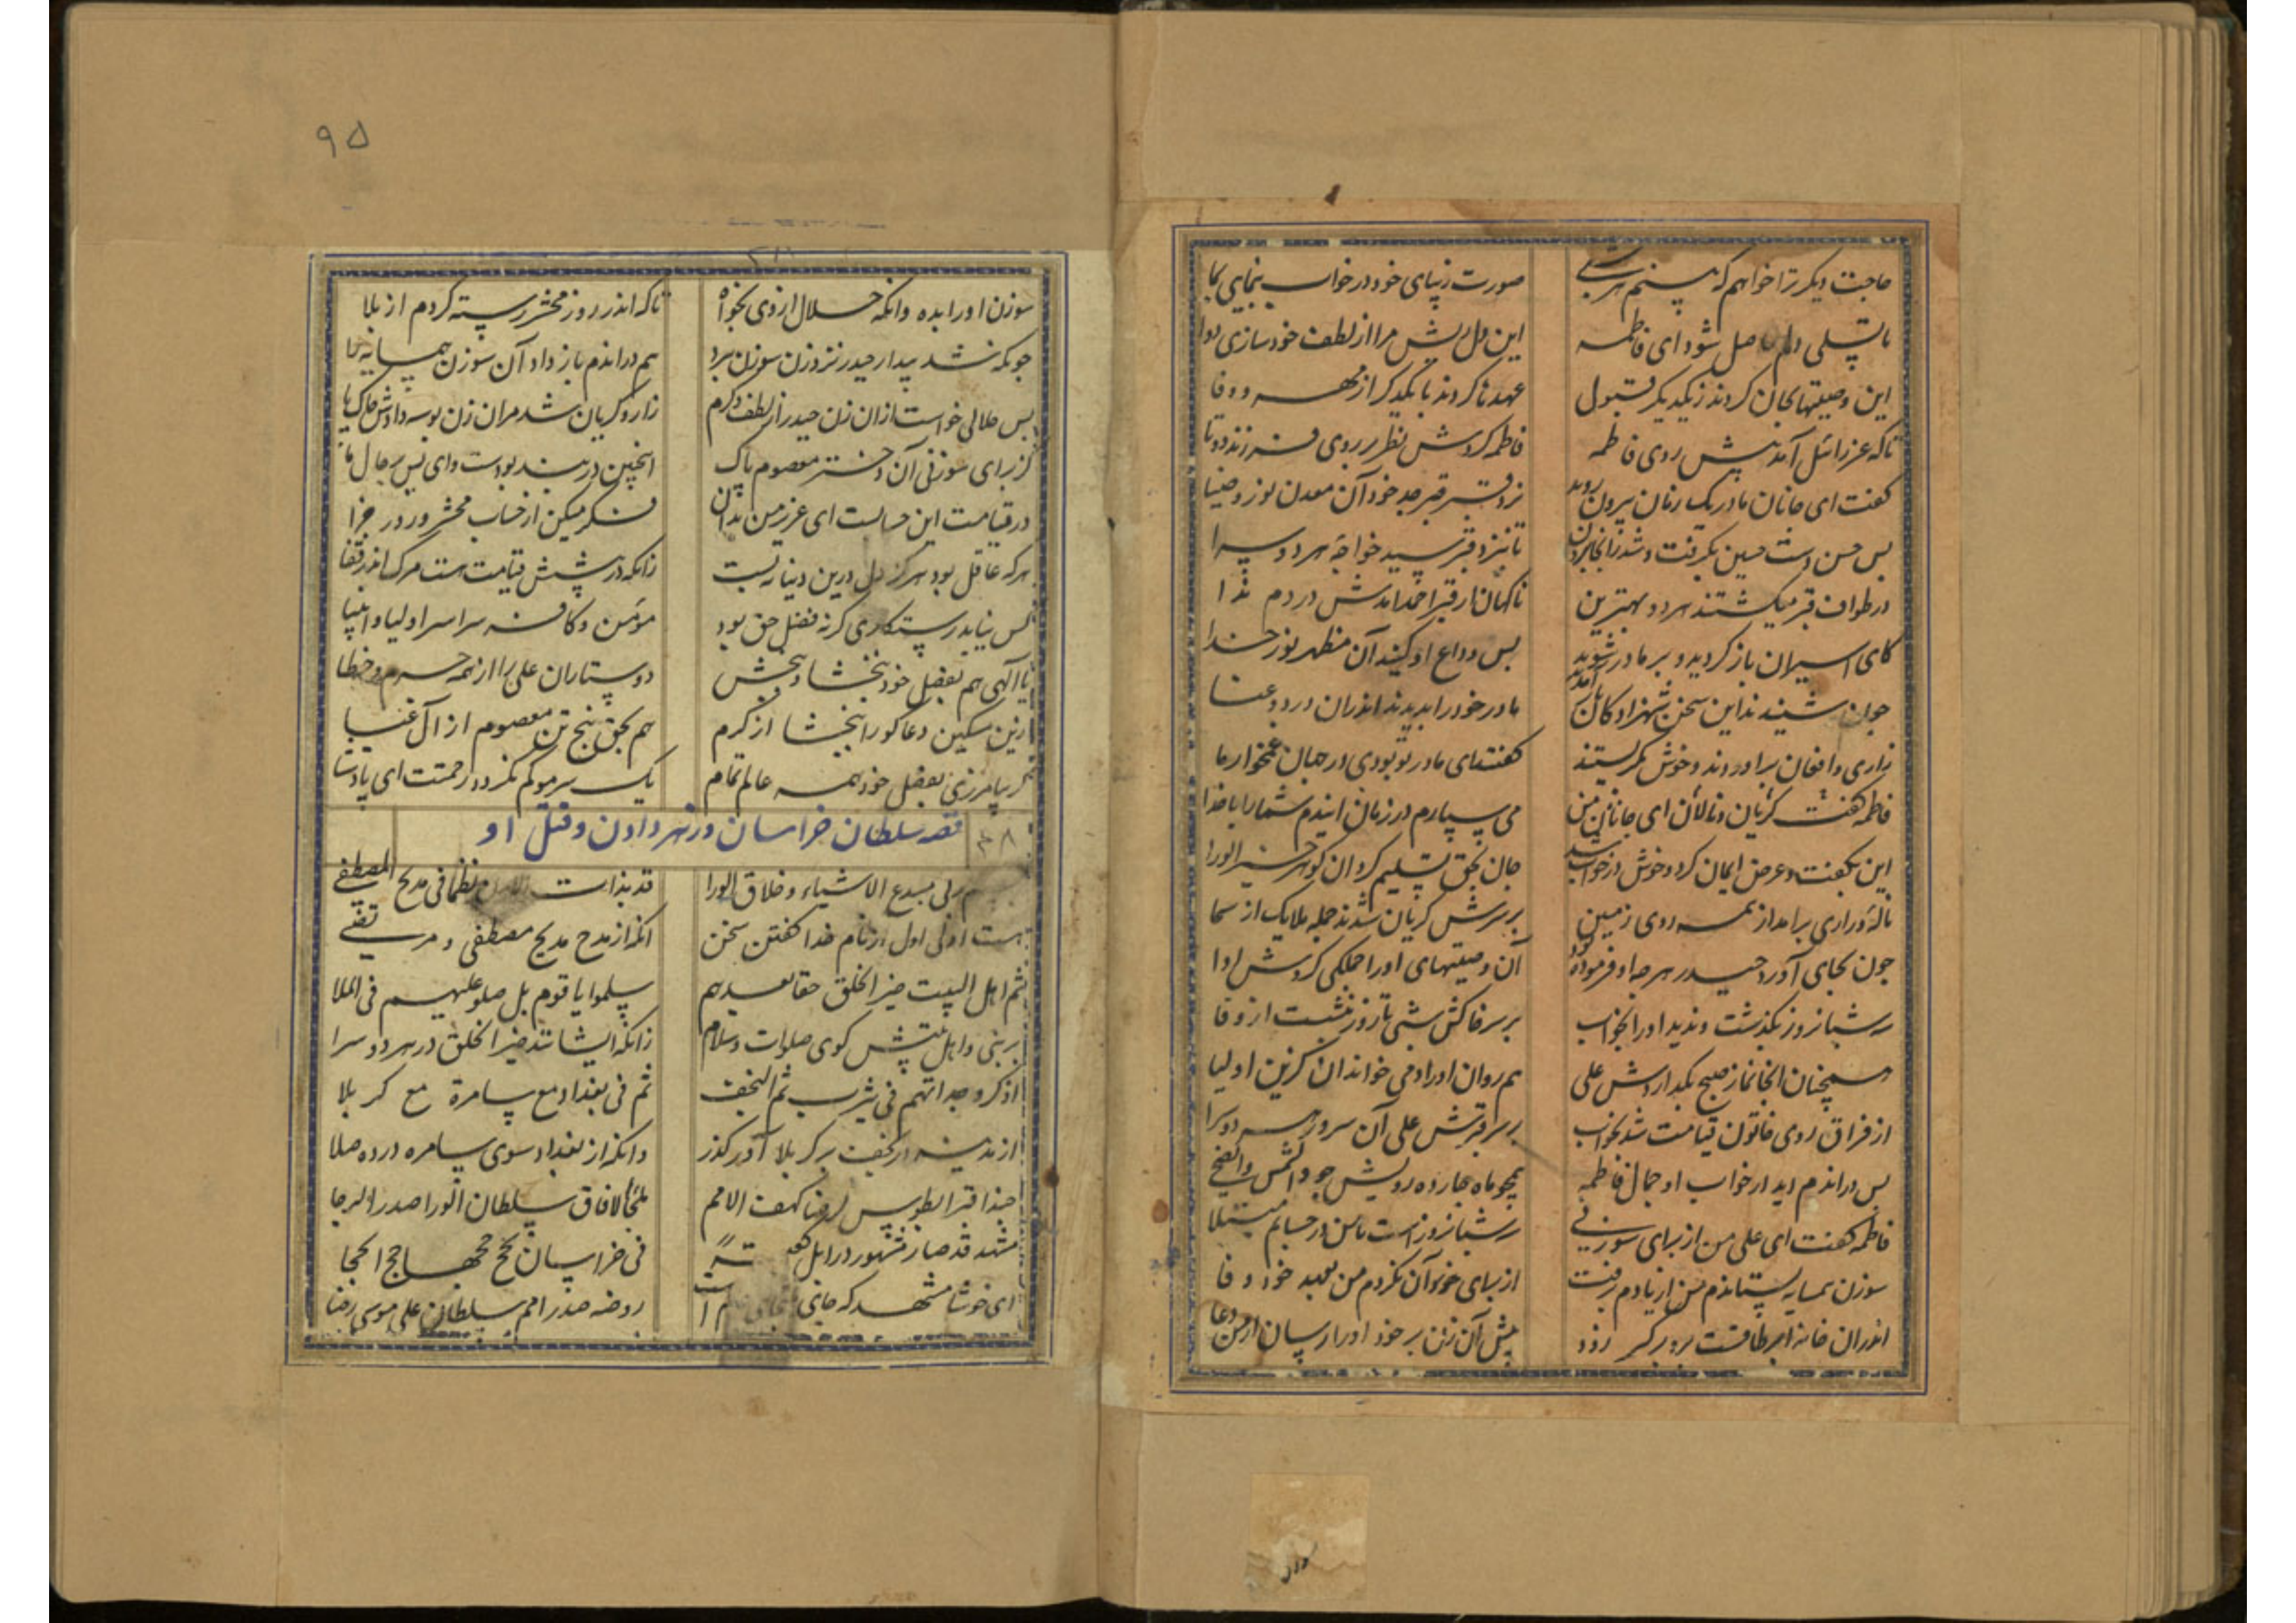 حاجت دیکر ترا خواهم که بینم هر شبی
صورت زیبای خود در خواب بنمایی بما
تا تسلی دلم حاصل شود ای فاطمه
این دل ریش مرا از لطف خود سازی دوا
این وصیتها بجان کردند زیکدیکر قبول
عهدها کردند با یکدیکر از مهر و وفا
تا که عزرائیل آمد پیش روی فاطمه
فاطمه کردش نظر بر روی فرزند دوتا
کفت ای جانان مادر یک زمان بیرون روید
نزد قبر جد خود آن معدن نور و ضیا
بس حسن دست حسین بکرفت و شد زانجا برون
تا بنزد قبر سید خواجهٔ هر دو سرا
در طواف قبر میکشتند هر دو بهترین
ناکهان از قبر احمد آمدش در دم ندا
کای اسیران باز کردید و بر مادر شوید
بس وداع او کنید آن مظهر نور خدا
چون شنیدند این سخن شهزادکان باز آمدند
مادر خود را بدیدند اندران درد و عنا
زاری و افغان براوردند و خوش بکریستند
کفتند ای مادر تو بودی در جهان غمخوار ما
فاطمه کفت کریان و نالان ای جانان من
می سپارم در زمان ایندم شما را با خدا
این بکفت و عرض ایمان کرد و خوش در خواب شد
جان بحق تسلیم کرد ان کوهر خیر الورا
نالهٔ و زاری برامد از همه روی زمین
بر سرش کریان شدند جمله ملایک از سما
چون بجای آورد حیدر هرچه او فرموده بود
آن وصیتهای او را جملکی کردش ادا
سه شبانروز بکذشت و ندید او را بخواب
بر سر خاکش شبی تا روز بنشست از وفا
همچنان انجا نماز صبح بکذاردش علی
هم روان اوراد می خواند ان کزین اولیا
از فراق روی خاتون قیامت شد بخواب
بر سر قبرش علی آن سرور هر دو سرا
بس دراندم دید در خواب او جمال فاطمه
همچو ماه چارده رویش چو والشمس والضحی
فاطمه کفت ای علی من از برای سوزنی
سه شبانروز است تا من در حسابم مبتلا
سوزن همسایه بستاندم من از یادم برفت
از برای خود آن نکردم من بعهد خود وفا
اندران خانه
پیش آن زن بر خود او را رسان از من دعا
۹۵
سوزن او را بده وانکه حلال از وی بخواه
تا که اندر روز محشر رسته کردم از بلا
چونکه شد بیدار حیدر نزد زن سوزن ببرد
هم دراندم باز داد آن سوزن همسایه را
بس حلالی خواست ازان زن حیدر از لطف و کرم
زار و کریان شد مران زن بوسه دادش خاک پا
کز برای سوزنی آن دختر معصوم پاک
اینچنین در بند بودست وای بس بر حال ما
در قیامت این حسابست ای عزیز من بدان
فکر میکن از حساب محشر و روز جزا
هرکه عاقل بود هرکز دل درین دنیا نبست
زانکه در پیشش قیامت هست مرک اندر قفا
کس نیابد رستکاری کر نه فضل حق بود
مؤمن و کافر سراسر اولیا و انبیا
یا الهی هم بفضل خود ببخشا و ببخش
دوستاران علی را از همه جرم و خطا
این مسکین دعاکو را ببخشا از کرم
هم بحق پنج تن معصوم از آل عبا
کر بیامرزی بفضل خود همه عالم تمام
یک سر مو کم نکردد رحمتت ای پادشا
قصه سلطان خراسان و زهر دادن و قتل او
ربی مبدع الاشیاء و خلاق الورا
قد بذات نظما فی مدح المصطفی
هست اولی اول از نام خدا کفتن سخن
انکه از مدح مدیح مصطفی و مرتضی
ثم اهل البیت خیر الخلق حقا بعدهم
سلموا یا قوم بل صلو علیهم فی الملا
بر نبی و اهل بیتش کوی صلوات و سلام
زانکه ایشانند خیر الخلق در هر دو سرا
اذکروا جداتهم فی یثرب ثم النجف
ثم فی بغداد مع سامرة مع کربلا
از مدینه از نجف بر کربلا آور کذر
وانکه از بغداد سوی سامره در ده صلا
حبذا قبرا بطوس لرضا کهف الامم
ملجأ الافاق سلطان الورا صدر الرجا
مشهد قد صار مشهور در اهل
فی خراسان حج حجها حج الحجا
ای خوشا مشهد که جای
روضه صدر امم سلطان علی موسی رضا